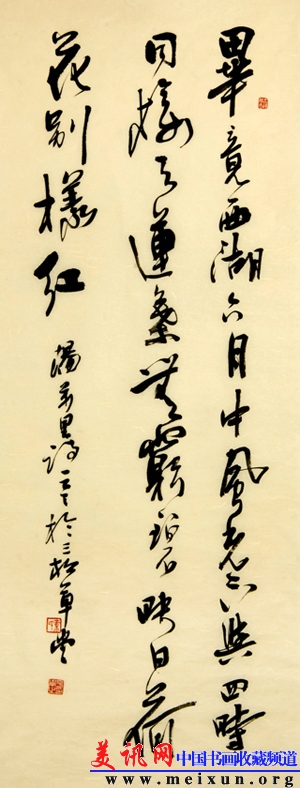 畢竟西湖六月中風光不與四時
同接天蓮葉無窮碧映日荷
花别樣紅
楊萬里詩 於三松草堂
美讯网 中国书画收藏频道
www.meixun.org